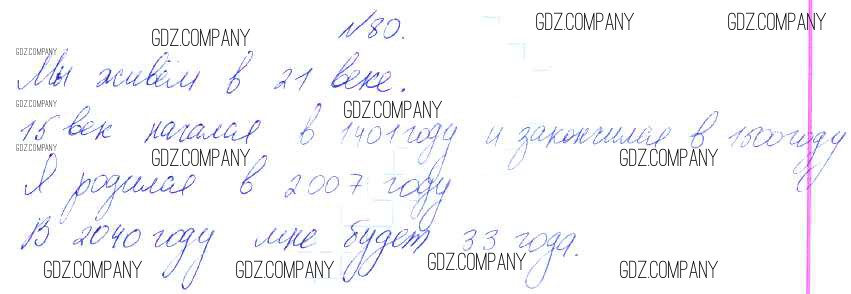 №80.
Мы живём в 21 веке.
15 век начался в 1401 году и закончился в 1500 году
Я родился в 2007 году
В 2040 году мне будет 33 года.
GDZ.COMPANY GDZ.COMPANY GDZ.COMPANY
GDZ.COMPANY
GDZ.COMPANY GDZ.COMPANY
GDZ.COMPANY GDZ.COMPANY GDZ.COMPANY
GDZ.COMPANY GDZ.COMPANY GDZ.COMPANY GDZ.COMPANY